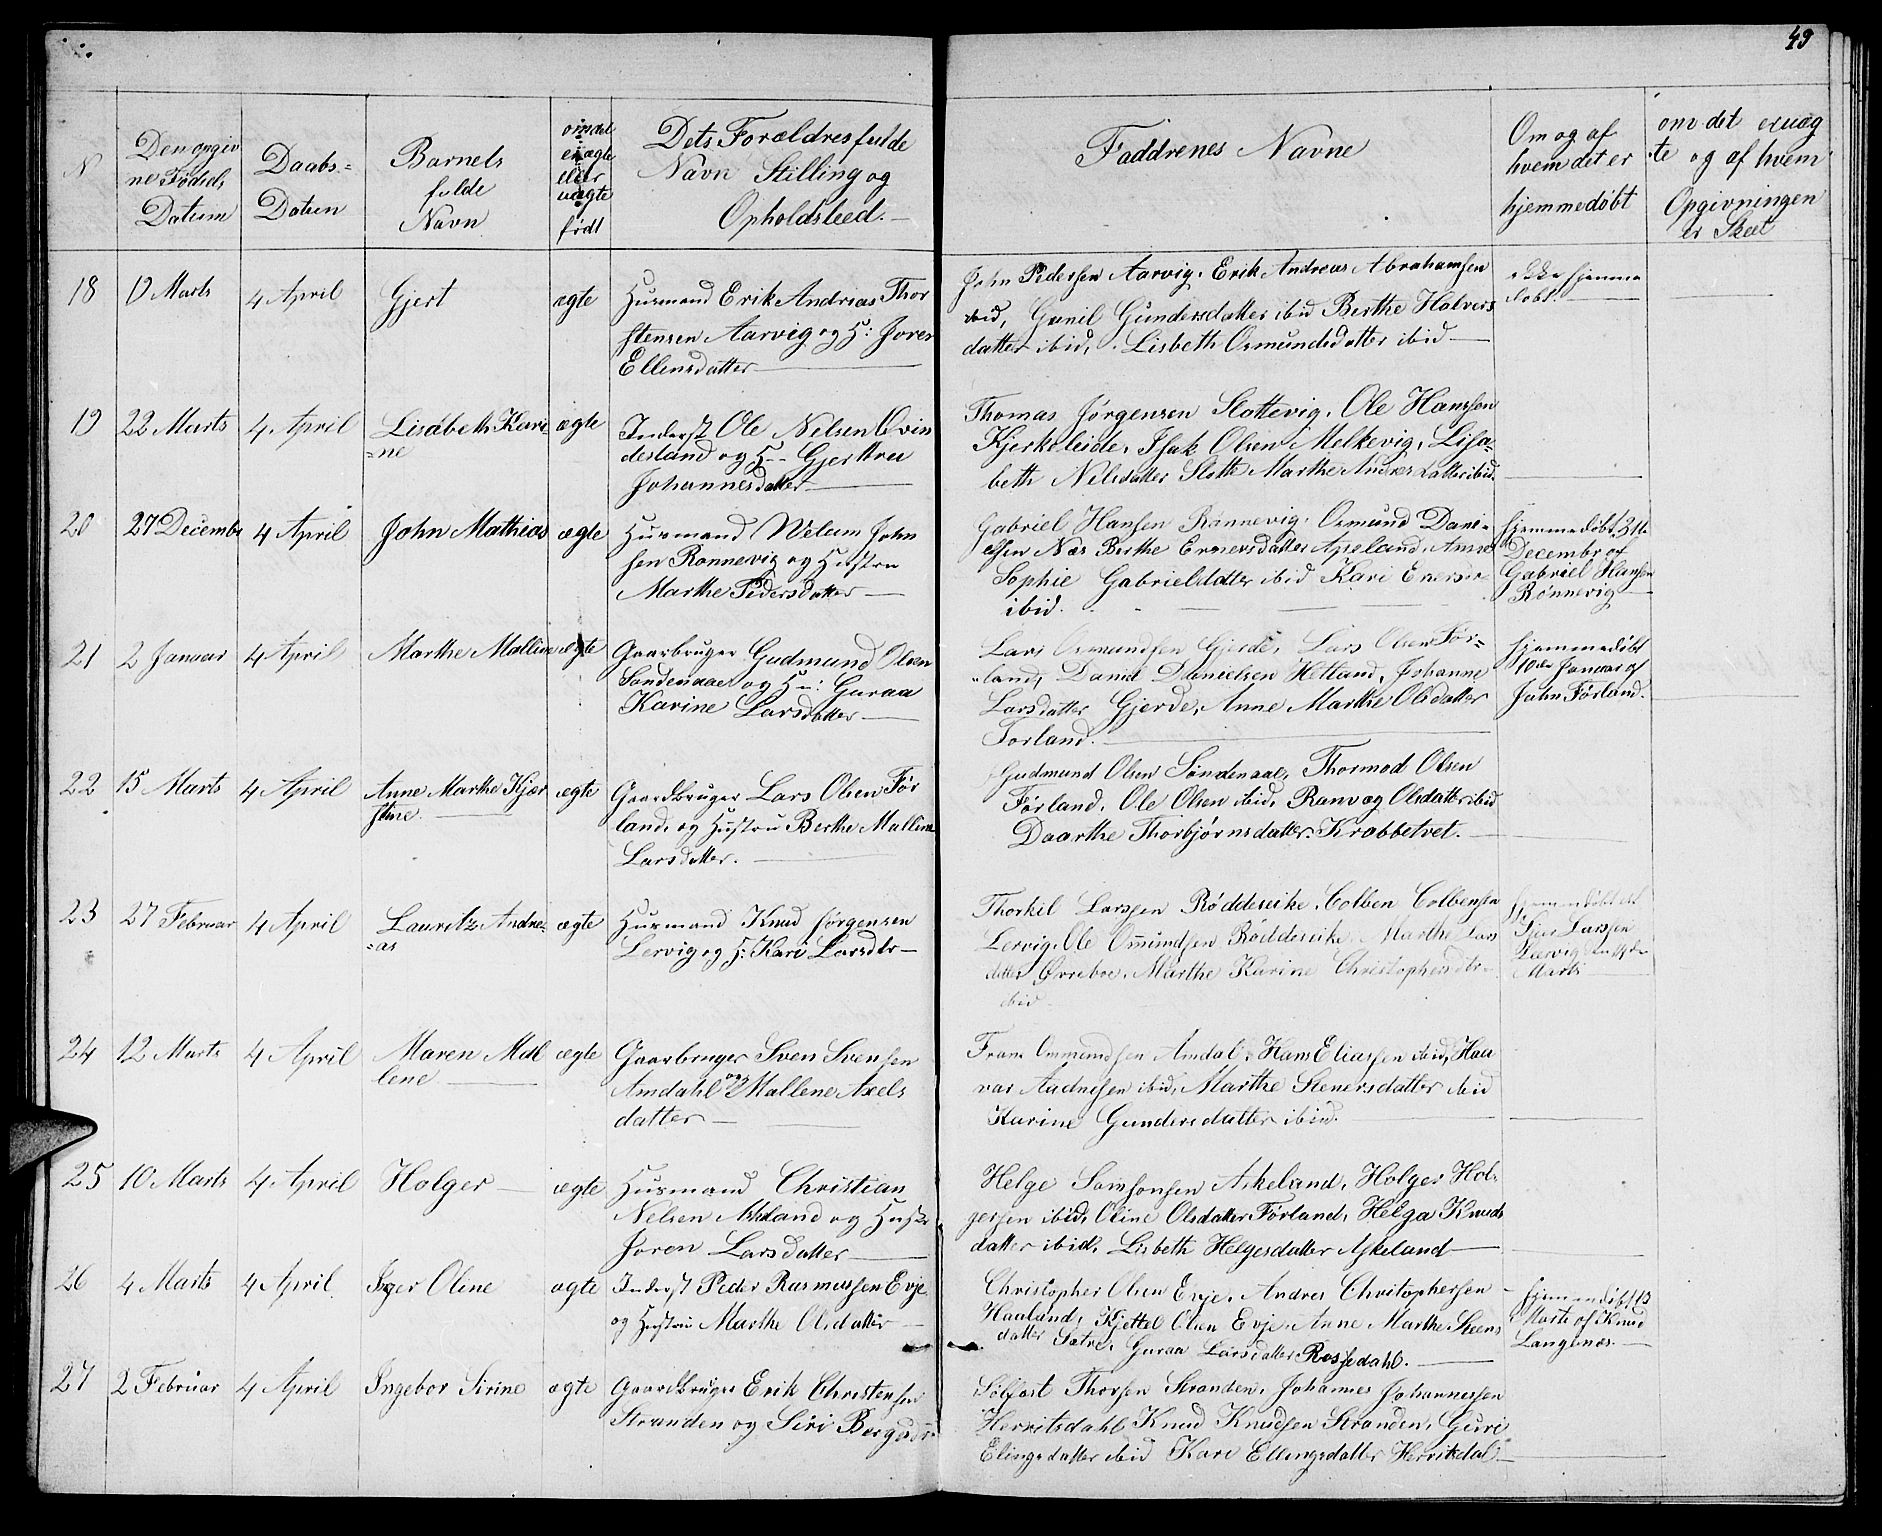 49
N
Den opgiv
ne Fødsels
Datum
Daabs=
Datum
Barnets
fulde
Navn
om det
er ægte
eller
uægte
født
Dets Forældres fulde
Navn Stilling og
Opholdsted.
Faddrenes Navne
Om og af
hvem det er
hjemmedøbt
om det er uæg
te og af hvem
Opgivningen
er Skeet
18
9 Marts
4 April
Gjert
ægte
Husmand Erik Andreas Thor
stensen Aarvig og H: Joren
Ellensdatter
John Pedersen Aarvig, Erik Andreas Abrahamsen
ibid, Gunil Gundersdatter ibid Berthe Halvors
datter ibid, Lisbeth Osmundsdatter ibid
ikke hjemme
døbt.
19
22 Marts
4 April
Lisabeth Kari
=ne
ægte
Inderst Ole Nelsen Qvin
desland og H Gjerttru
Johannesdatter
Thomas Jørgensen Slottevig, Ole Hanssen
Kjerkeleide, Isak Olsen Melkevig, Lisa=
beth Nilsdatter Slotte Marthe Andersdatter ibid.
20
27 December
4 April
John Mathias
ægte
Husmand Vilum John
sen Rønnevig og Hustru
Marthe Pedersdatter
Gabriel Hansen Rønnevig, Osmund Dani=
elsen Næs Berthe Enersdatter Apeland, Anne
Sophie Gabrielsdatter ibid Kari Eners
ibid.
hjemmedøbt 31te
Decembr af
Gabriel Hansen
Rønnevig
21
2 Januar
4 April
Marthe Malline
ægte
Gaarbruger Gudmund Olsen
Søndenaae og H: Guraa
Karine Larsdatter
Lars Osmundsen Gjerde, Lars Olsen Før=
=land, David Danielsen Hetland, Johanne
Larsdatter Gjerde, Anne Marthe Olsdatter
Førland.
hjemmedøbt
10de Januar af
John Førland.
22
15 Marts
4 April
Anne Marthe Kjær
stine.
ægte
Gaardbruger Lars Olsen Før
land, og Hustru Berthe Malline
Larsdatter.
Gudmund Olsen Søndenaae, Thormod Olsen
Førland, Ole Olsen ibid, Ranvæg Olsdatter ibid
Daarthe Thorbjørnsdatter Krabbetvet.
23
27 Februar
4 April
Lauritz Andre=
=as
ægte
Husmand Knud Jørgensen
Lervig og H: Kari Larsdtr
Thorkil Larssen Røddereike, Colben Colbensen
Lervig, Ole Omundsen Røddereike, Marthe Lars
datter Øvrebøe, Marthe Karine Christophersdtr
ibid
hjemmedøbt af
Larssen
Lærvig
Marts
24
12 Marts
4 April
Maren Mal
lene
ægte
Gaarbruger Sven Svensen
Amdahl og Mallene Axels
datter
Frans Ommundsen Amdal, Hans Eliassen ibid, Haa
var Aadnesen ibid, Marthe Stenersdatter ibid
Karine Gundersdatter ibid.
25
10 Marts
4 April
Holger
ægte
Husmand Christian
Nelsen Askland og Hustr
Joren Larsdatter
Helge Samsonsen Askeland, Holger Hol=
gersen ibid, Oline Olsdatter Førland, Helga Knuds
datter ibid, Lisbeth Helgesdatter Askeland
26
4 Marts
4 April
Inger Oline
ægte
Inderst Peder Rasmussen Evje
og Hustru Marthe Olsdatter
Christopher Olsen Evje, Andres Christophersen
Haaland, Kjettel Olsen Evje, Anne Marthe Steens
datter Sætre, Guraa Larsdatter Rossedahl.
hjemmedøbt 13
Marts af Knud
Langenæs.
27
2 Februar
4 April
Ingebor Sirine
ægte
Gaardbruger Erik Christensen
Stranden og Siri Børgesdtr
Sølfest Thorsen Stranden, Johannes Johannessen
Hervitsdahl Knud Knudsen Stranden, Guri
Elingsdatter ibid Kari Ellingsdatter Hervitsdal